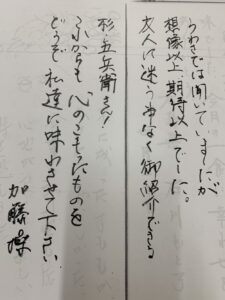 うわさでは聞いていましたが
想像以上、期待以上でした。
友人に迷う事なく御紹介できる
杉・五兵衛さん!
これからも心のこもったものを
どうぞ私達に味わわせて下さい。
加藤